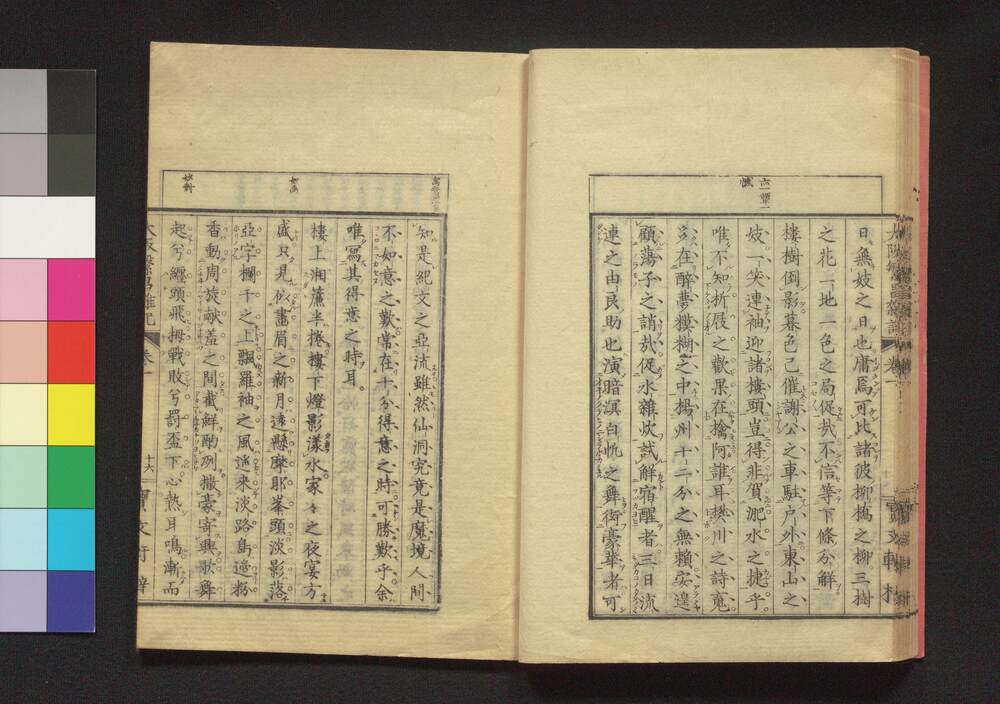 日無妓之日也庸焉可比諸彼柳橋之柳三樹
之花一地一色之局促哉不信等下條分解
樓樹倒影暮色已催謝公之車駐户外東山之
妓一笑連袖迎諸樓頭豈得非賀淝水之捷乎
唯不知折屐之歡果在擒阿誰耳樊川之詩寃
多在醉夢糢糊之中揚州十二分之無賴安遑
顧蕩子之誚哉促水雜炊試解宿酲者三日流
連之由良助也演暗瀛白恍之舞衒豪華者可
知是紀文之亞流雖然仙洞究竟是魔境人間
不如意之歎常在十分得意之時可勝歎乎余
唯寫其得意之時耳
樓上湘簾半捲樓下燈影漾水家々之夜宴方
盛只見似畫眉之新月遠懸摩耶峯頭淡影落
亞字欄干之上飄羅袖之風遙來淡路島邊粉
香動周旋献羞之間截鮮酌冽撤豪寄興歌舞
起兮纏頭飛拇戰敗兮罰盃下心熱耳鳴漸而
大阪繁昌雜記
卷一
十六
寶文軒梓
如畫
妙對